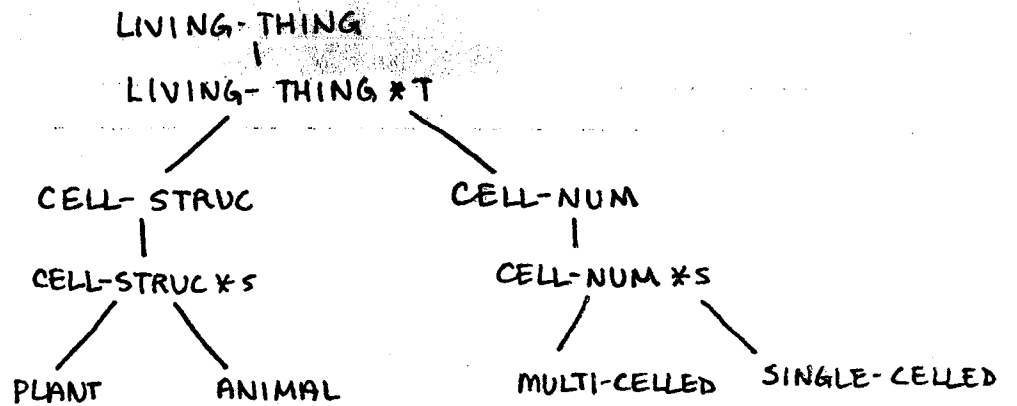 LIVING-THING
LIVING-THING*T
CELL-STRUC CELL-NUM
CELL-STRUC*S CELL-NUM*S
PLANT ANIMAL MULTI-CELLED SINGLE-CELLED